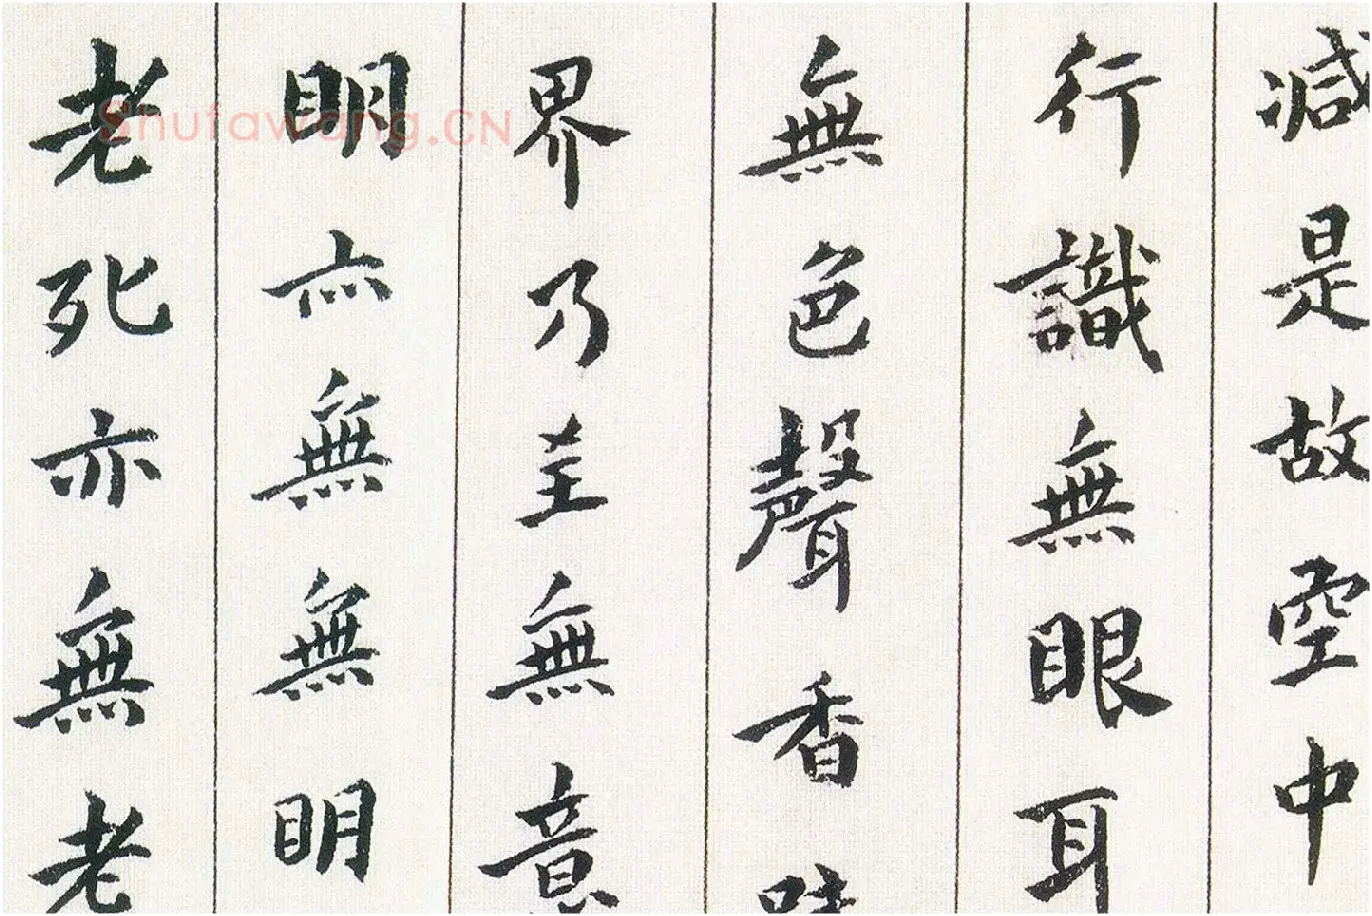 減是故空中
行識無眼耳
無色聲香味
界乃至無意
明亦無無明
老死亦無老
Shufawang.CN